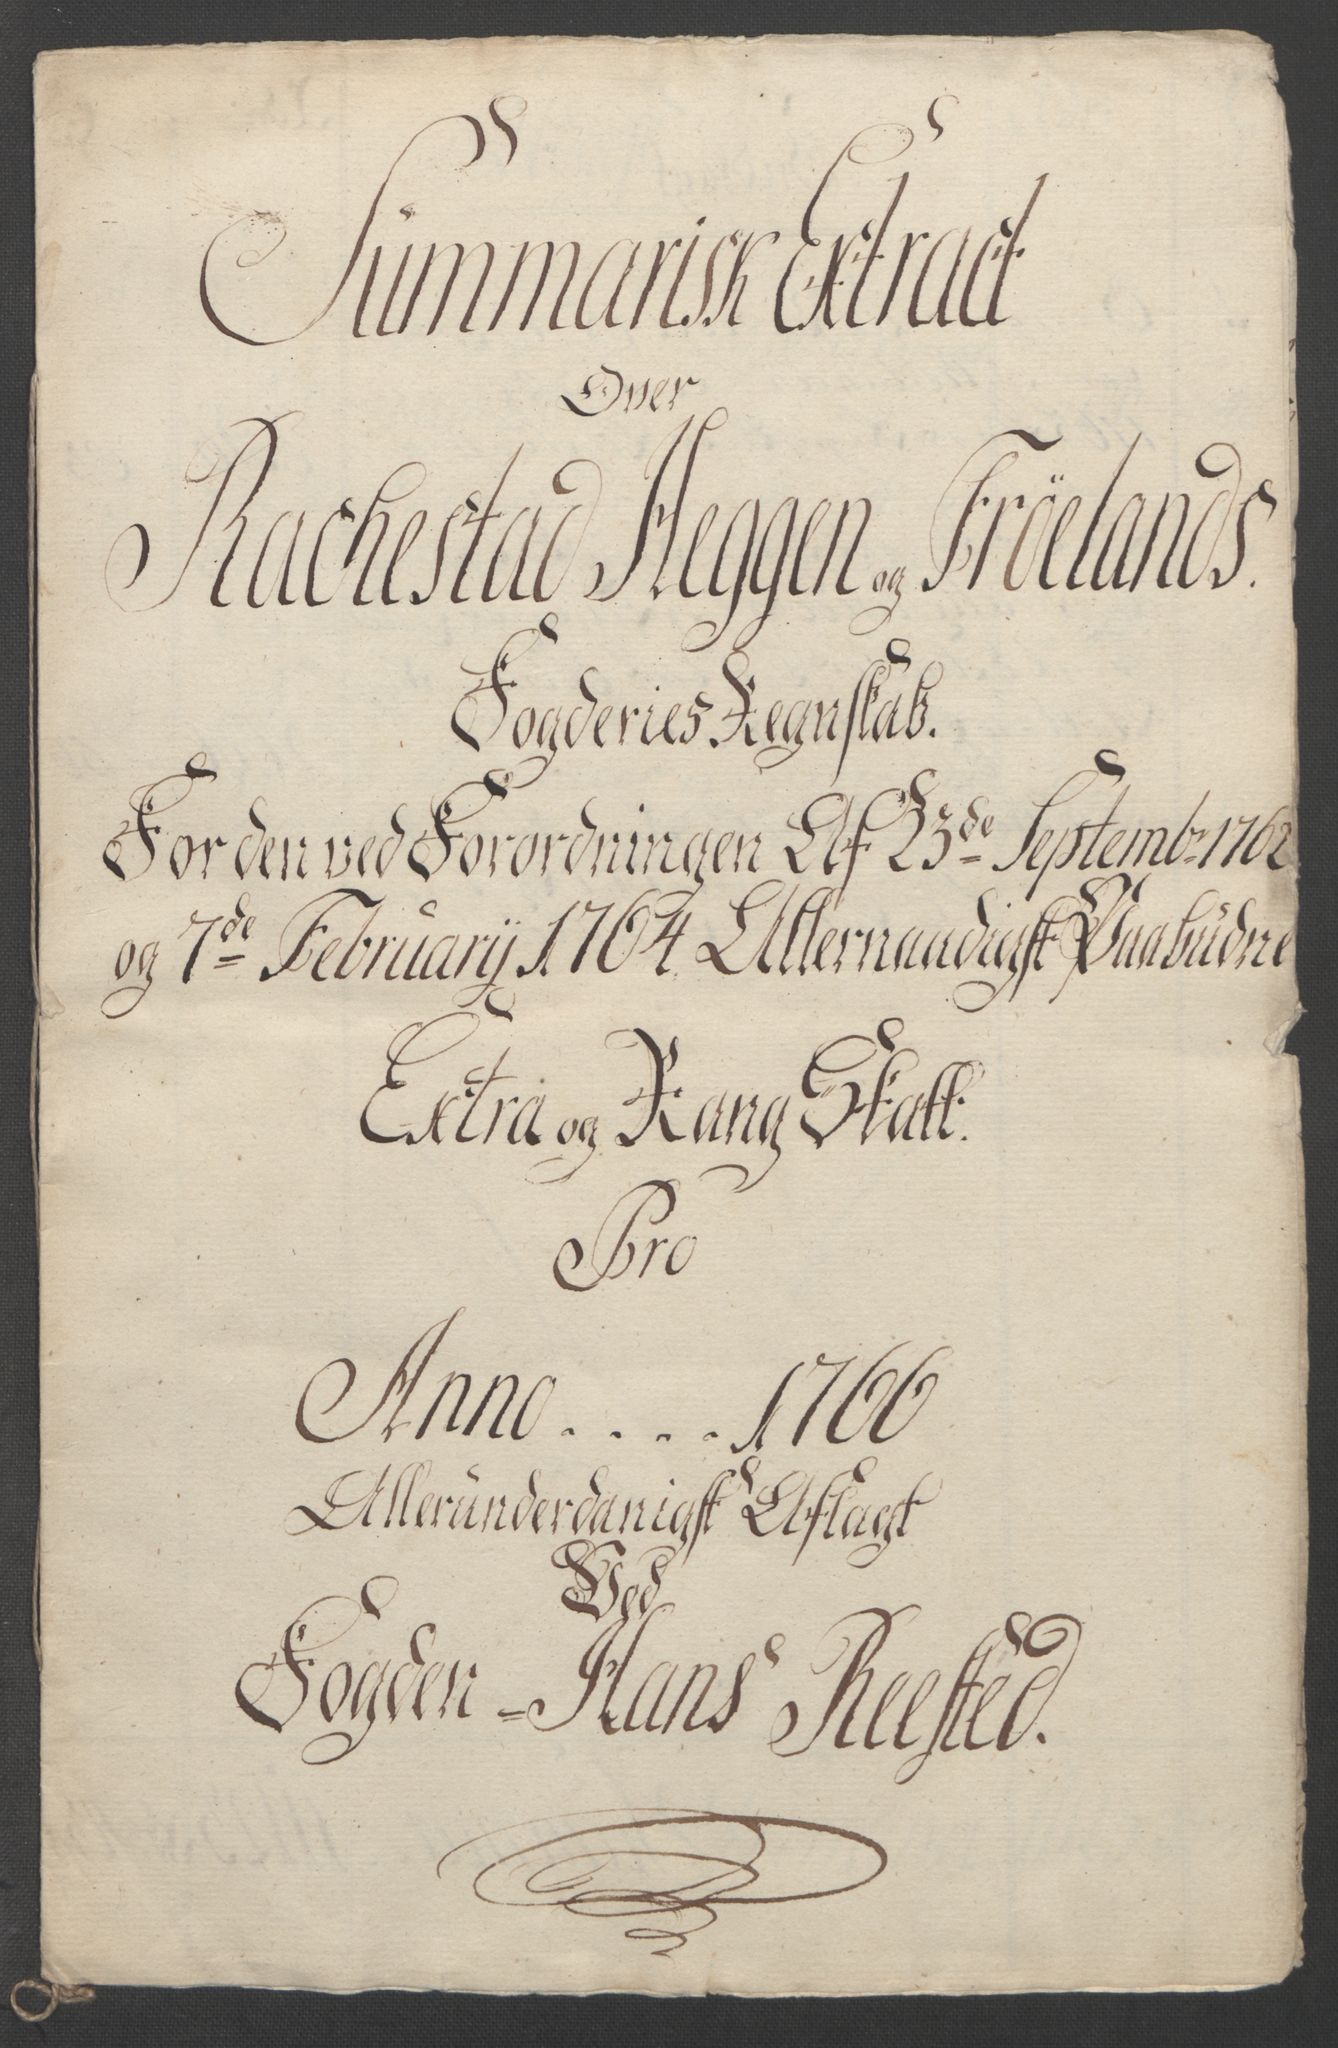 Summarisk Extract
Over
Rachestad Heggen og Fröelands.
Fogderies Regnskab.
For den ved Forordningen Af 23de Septembr 1762
og 7de Februarij 1764 Allernaadigst Paabudne
Extra og Rang Skatt.
Pro
Anno . . . . 1766
Allerunderdanigst Aflagt
Ved
Fogden = Hans Reested.